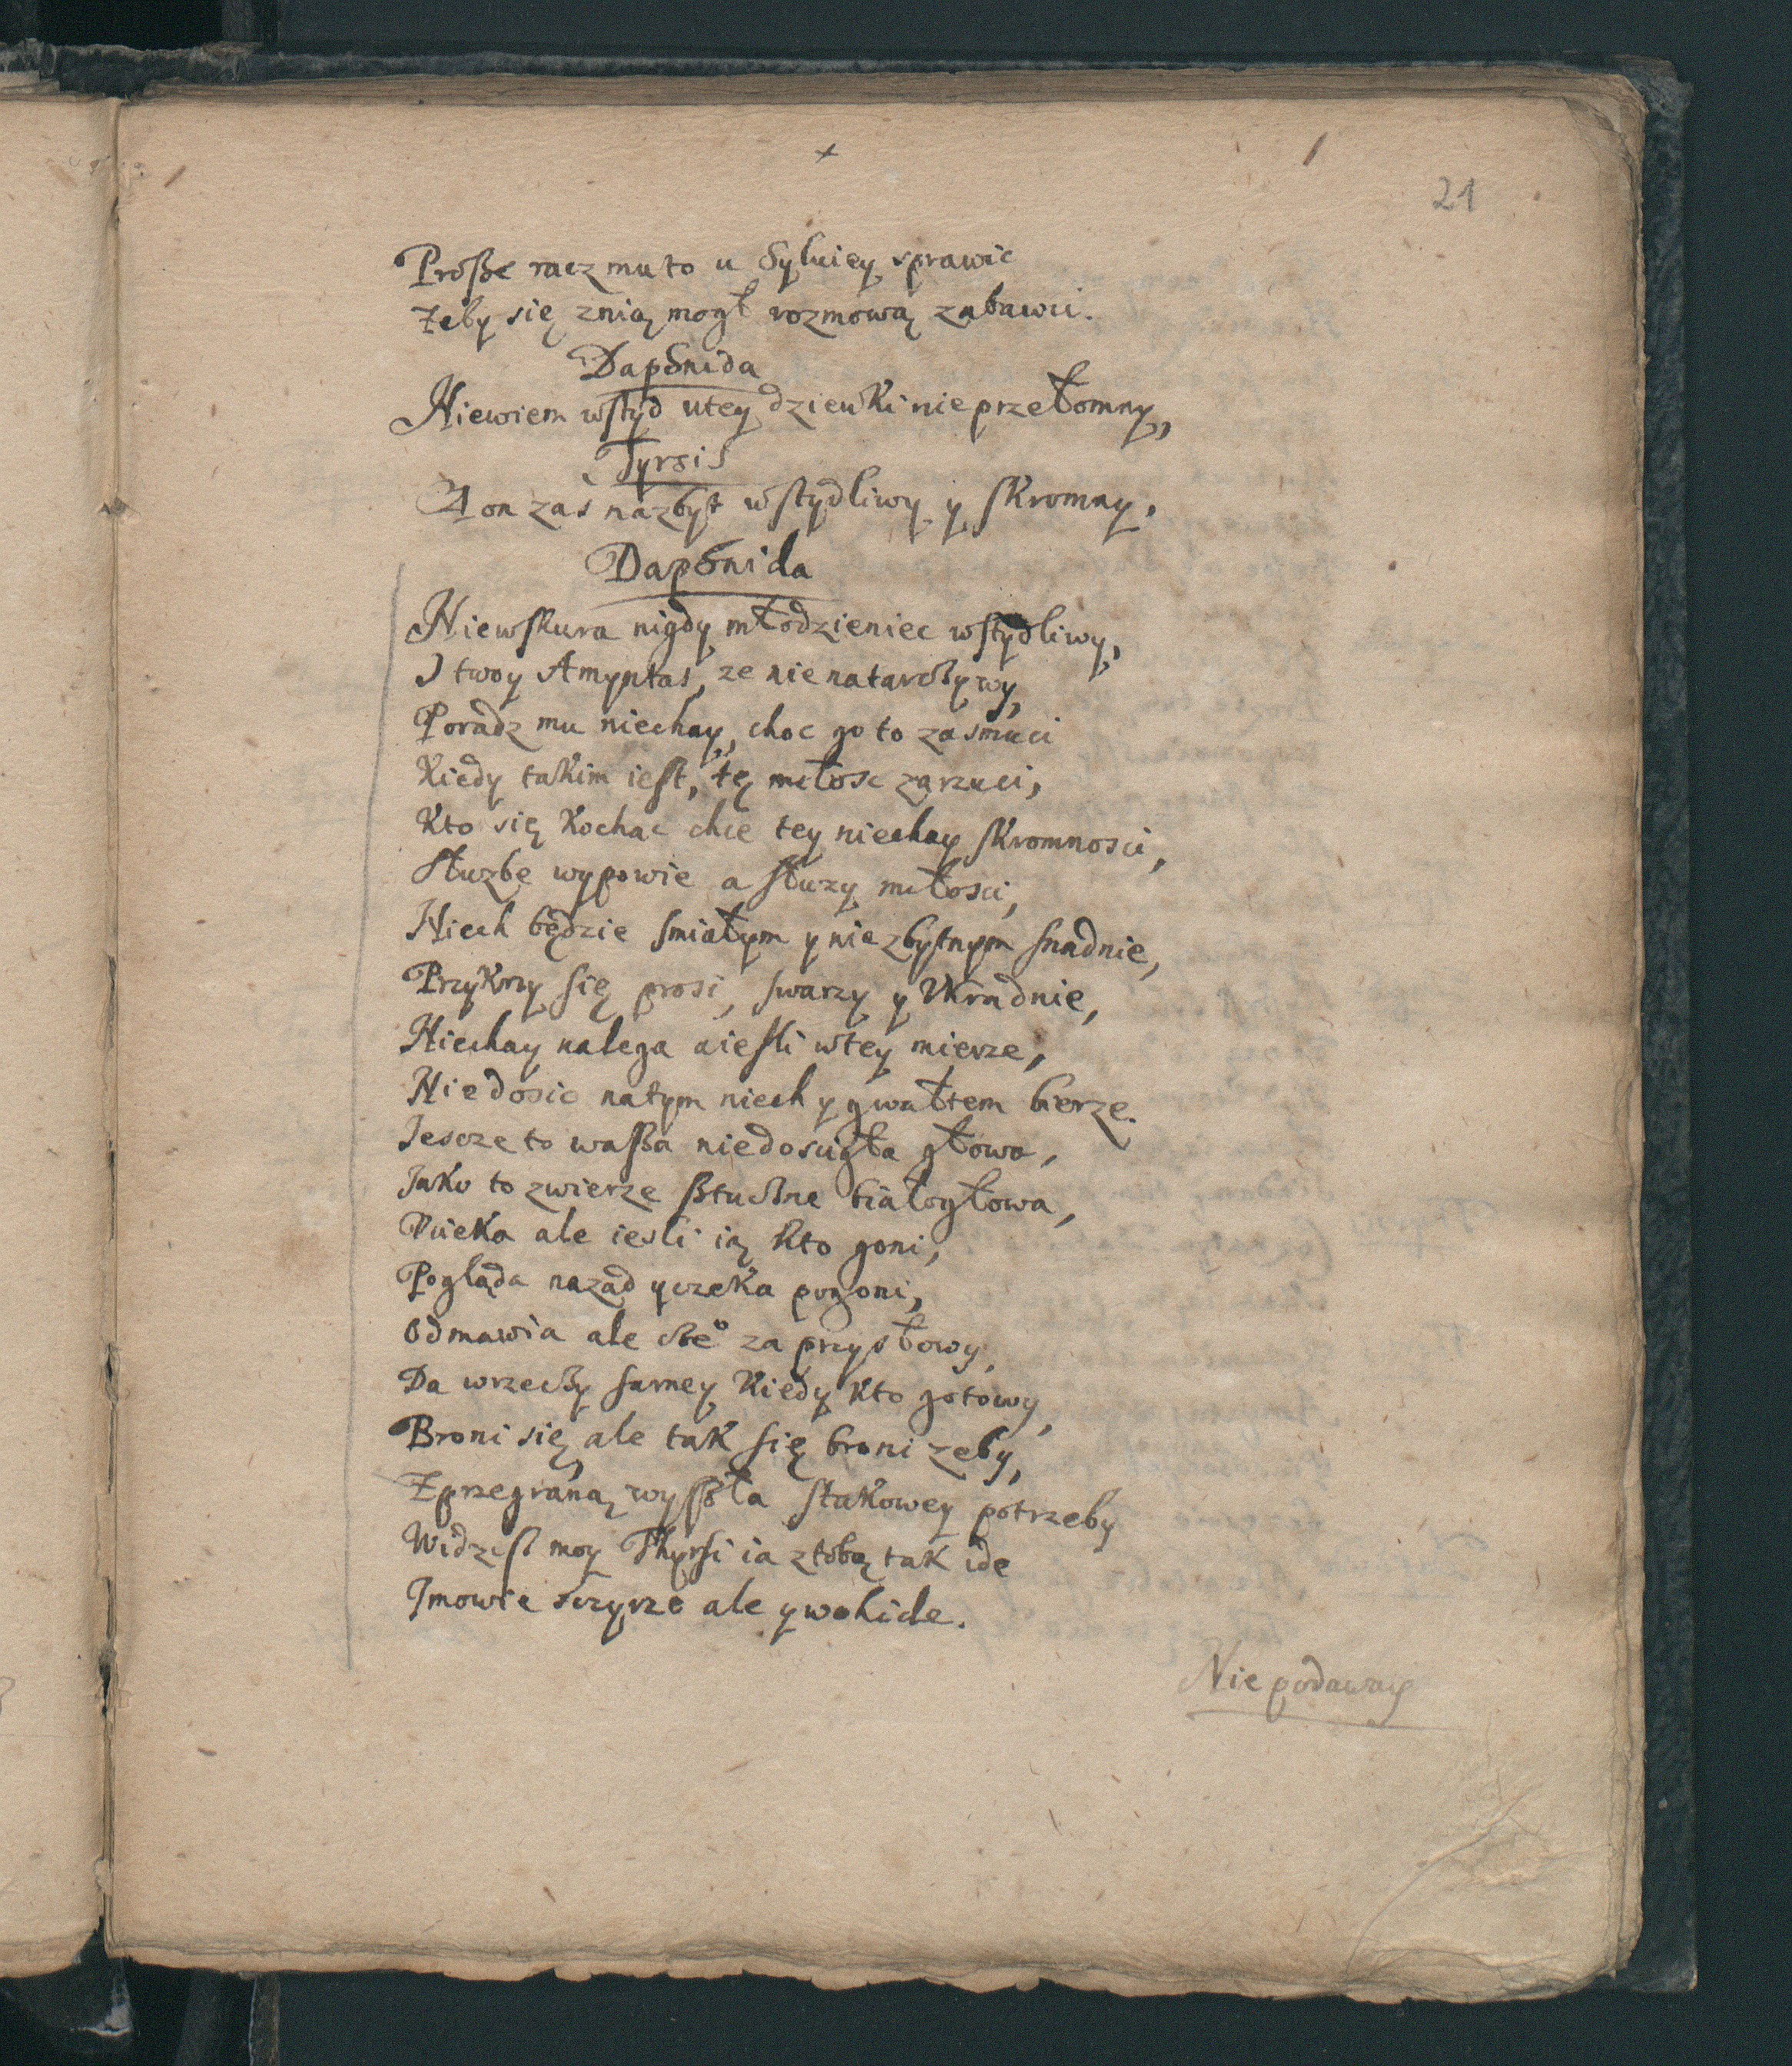 21
Proßę racz mu to u Sylwiey sprawic
Zeby się znią mogł rozmową zabawic.
Daphnida
Niewiem wstyd utey dziewki nie przełomny,
Tyrsis
A on zaś nazbyt wstydliwy y skromny.
Daphnida
Niewskura nigdy młodzieniec wstydliwy,
I twoy Amyntas, ze nie natarczywy,
Poradz mu niechay, choc go to zasmuci
Kiedy takim iest, tę miłosc zarzuci,
Kto się kochac chce tey niechay skromnosci,
Słuzbe wypowie a słuzy miłosci,
Niech będzie smiałym y niezbytnym snadnie,
Przykrzy się prosi, swarzy y Ukradnie,
Niechay nalega a iesli wtey mierze,
Nie dosic natym niech y gwałtem bierze.
Jescze to waßa niedoscigła głowa,
Jako to zwierze ßtuczne białogłowa,
Ucieka ale iesli ią kto goni,
Pogląda nazad y czeka pogoni,
Odmawia ale chce za przysłowy,
Da wrzeczy samey kiedy kto gotowy,
Broni się ale tak się broni zeby,
Zprzegraną wyßła stakowey potrzeby
Widziß moy Thyrsi ia ztobą tak idę
I mowie sczyrze ale y wohide.
Nie podaway